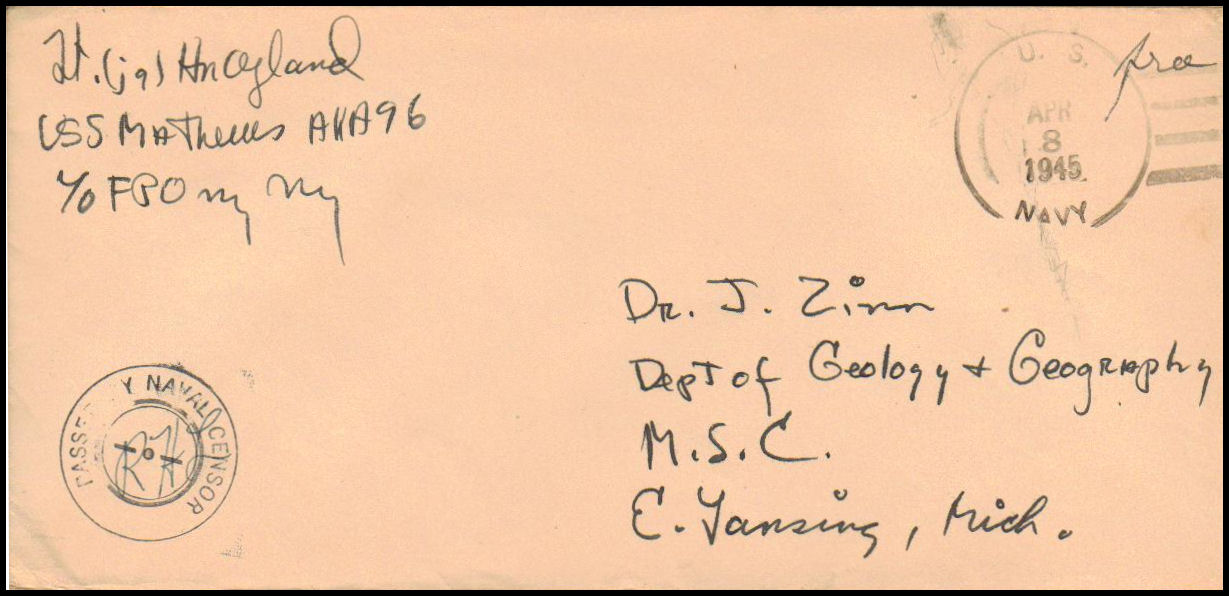 Lt. (jg) H Hoagland
USS Mathews AKA96
c/o FPO NY NY
free
U. S.
APR
8
1945
NAVY
Dr. J. Zinn
Dept of Geology + Geography
M.S.C.
E. Lansing, Mich.
PASSED BY NAVAL CENSOR
RH